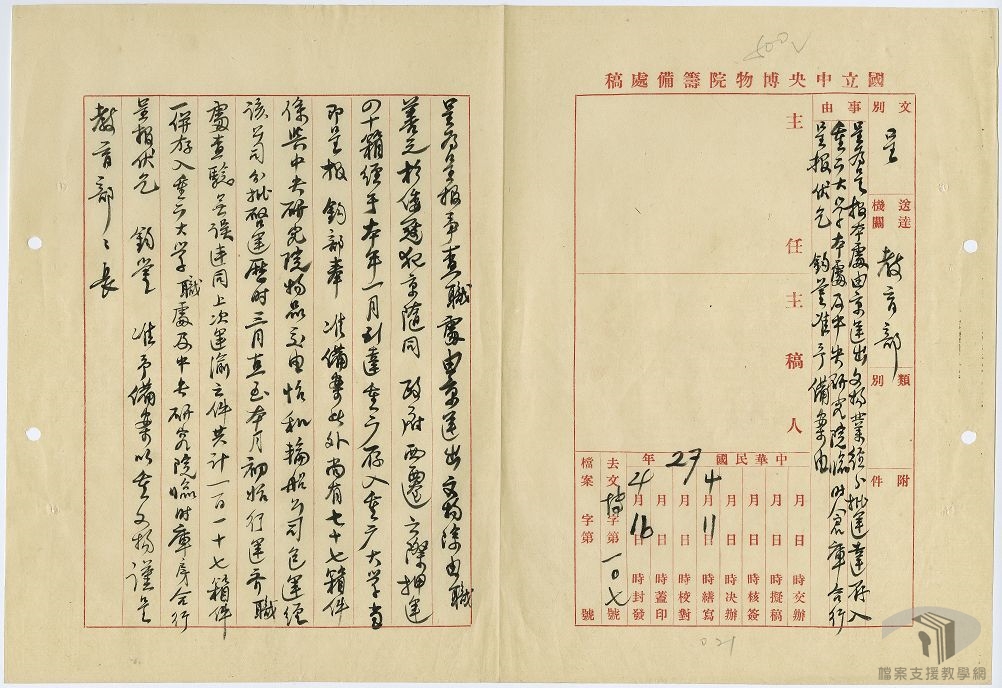 國立中央博物院籌備處稿
文別
呈
送達機關
教育部
類別
附件
事由
呈為呈報本處由京運出文物業經分批運達存入
重慶大學本處及中央研究院臨時倉庫合行
呈報伏乞 鈞鑒准予備案由
主任
主稿人
中華民國27年
月 日 時交辦
月 日 時擬稿
月 日 時核簽
月 日 時決辦
4月11日 時繕寫
月 日 時校對
月 日 時蓋印
4月16日 時封發
去文博字第一〇七號
檔案 字第 號
呈為呈報事查職處由京運出文物除由職
善之於倭寇犯京隨同 政府西遷之際押運
四十箱經于本年一月到達重慶存入重慶大學當
即呈報 鈞部奉 准備案此外尚有七十七箱件
係與中央研究院物品交由怡和輪船公司包運經
該公司分批啓運歷時三月直至本月初始行運齊職
處查驗無誤連同上次運渝之件共計一百一十七箱件
一併存入重慶大學職處及中央研究院臨時庫房合行
呈報伏乞 鈞鑒 准予備案以重文物謹呈
教育部部長
021
檔案支援教學網